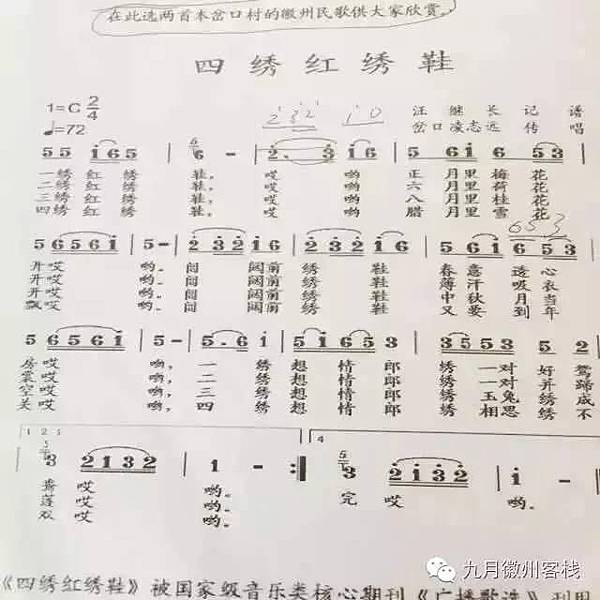 在此选两首本岔口村的徽州民歌供大家欣赏。
四绣红绣鞋
1=C 2/4
♩=72
汪继长记谱
岔口凌志远传唱
5 5 i 6 5 6 - 2. 3 i 6 5 6 i 6 5 3
一绣红绣鞋, 哎哟 正月里梅花
二绣红绣鞋, 哎哟 六月里荷花
三绣红绣鞋, 哎哟 八月里桂花
四绣红绣鞋, 哎哟 腊月里雪花
5 6 5 6 i 5 - 2 3 2 i 6 i 2 3 2 i 6 5 6 i 6 5 3
开哎哟。闾阔前绣鞋 春意透心
开哎哟。闾阔前绣鞋 薄汗吸衣
开哎哟。闾阔前绣鞋 中秋月当
飘哎哟。闾阔前绣鞋 又要到年
5 6 5 6 i 5 - 5. 6 i 5 3 2 3 5 5 3 5 2
房哎哟,一绣想情郎 绣一对好鸳
裳哎哟,二绣想情郎 绣一对并蹄
空哎哟,三绣想情郎 绣一玉兔成
关哎哟,四绣想情郎 绣相思绣不
1 2 3 4
3 2 1 3 2 1 - 3 2 i 3 2 i -
鸯哎哟。 完哎哟。
莲哎哟。
双哎哟。
《四绣红绣鞋》被国家级音乐类核心期刊《广播歌选》刊用
九月徽州客栈